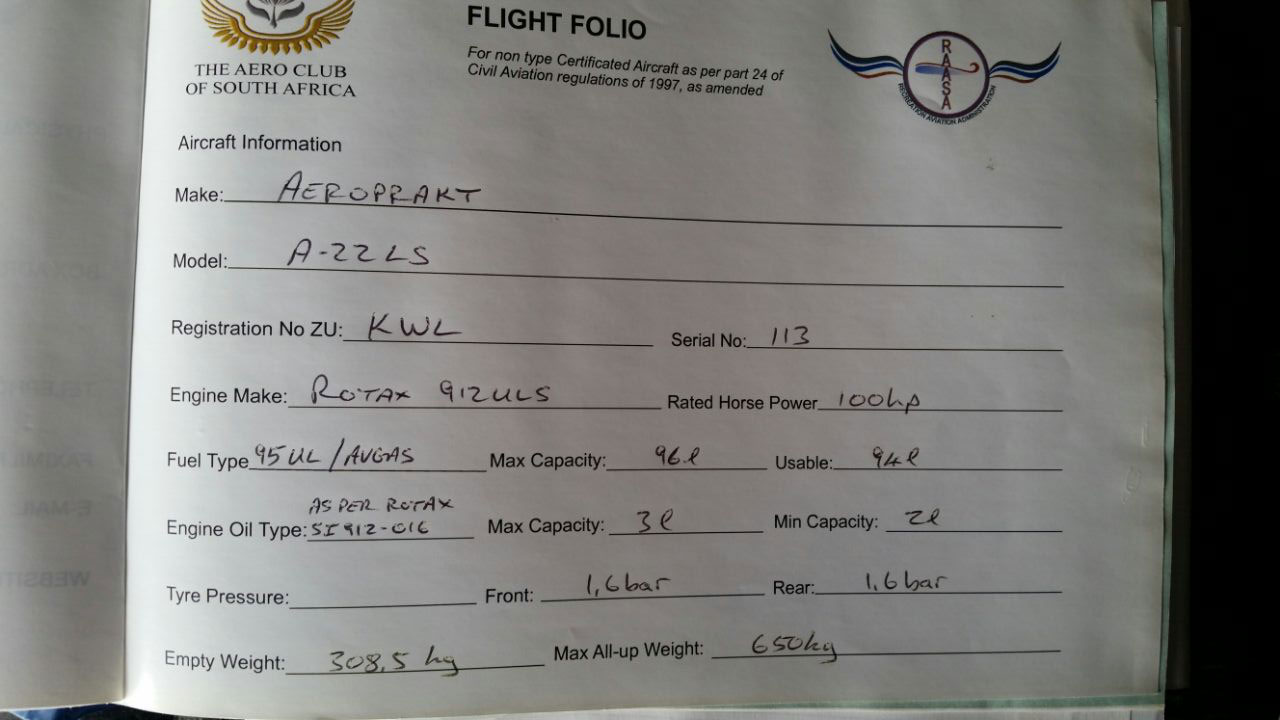 THE AERO CLUB
OF SOUTH AFRICA
FLIGHT FOLIO
For non type Certificated Aircraft as per part 24 of
Civil Aviation regulations of 1997, as amended
RAASA
RECREATION AVIATION ADMINISTRATION
Aircraft Information
Make: AEROPRAKT
Model: A-22LS
Registration No ZU: KWL Serial No: 113
Engine Make: ROTAX 912ULS Rated Horse Power 100hp
Fuel Type 95UL/AVGAS Max Capacity: 96l Usable: 94l
AS PER ROTAX
Engine Oil Type: SI912-016 Max Capacity: 3l Min Capacity: 2l
Tyre Pressure: Front: 1,6bar Rear: 1.6bar
Empty Weight: 308,5 kg Max All-up Weight: 650kg